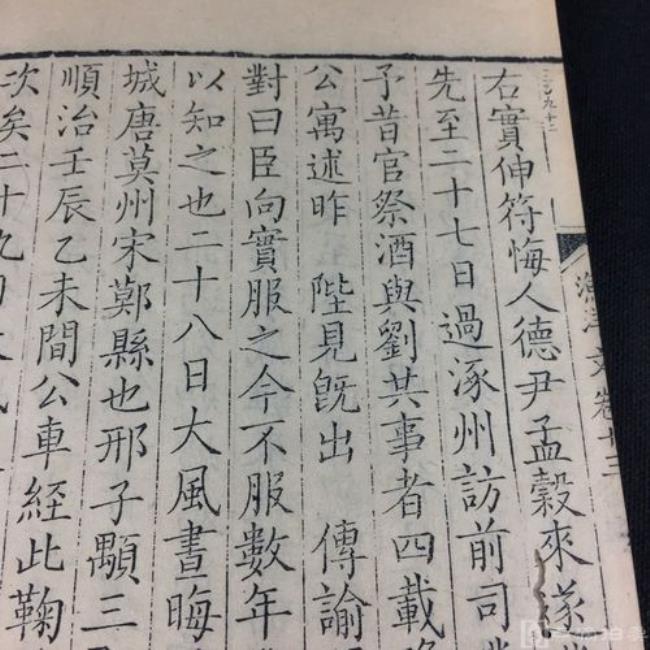 漁洋文 卷十三
右實伸符悔人德尹孟穀來遂
先至二十七日過涿州訪前司業
予昔官祭酒與劉共事者四載
公寓述昨 陛見既出 傳諭
對曰臣向實服之今不服數年
以知之也二十八日大風晝晦
城唐莫州宋鄭縣也邢子顒三
順治壬辰乙未間公車經此鞠
次矣二十九日大風